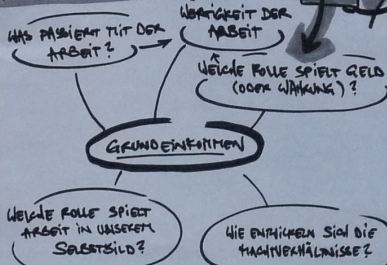 WAS PASSIERT MIT DER
ARBEIT?
WERTIGKEIT DER
ARBEIT
WELCHE ROLLE SPIELT GELD
(ODER WÄHRUNG)?
GRUNDEINKOMMEN
WELCHE ROLLE SPIELT
ARBEIT IN UNSEREM
SELBSTBILD?
WIE ENTWICKELN SICH DIE
MACHTVERHÄLTNISSE?